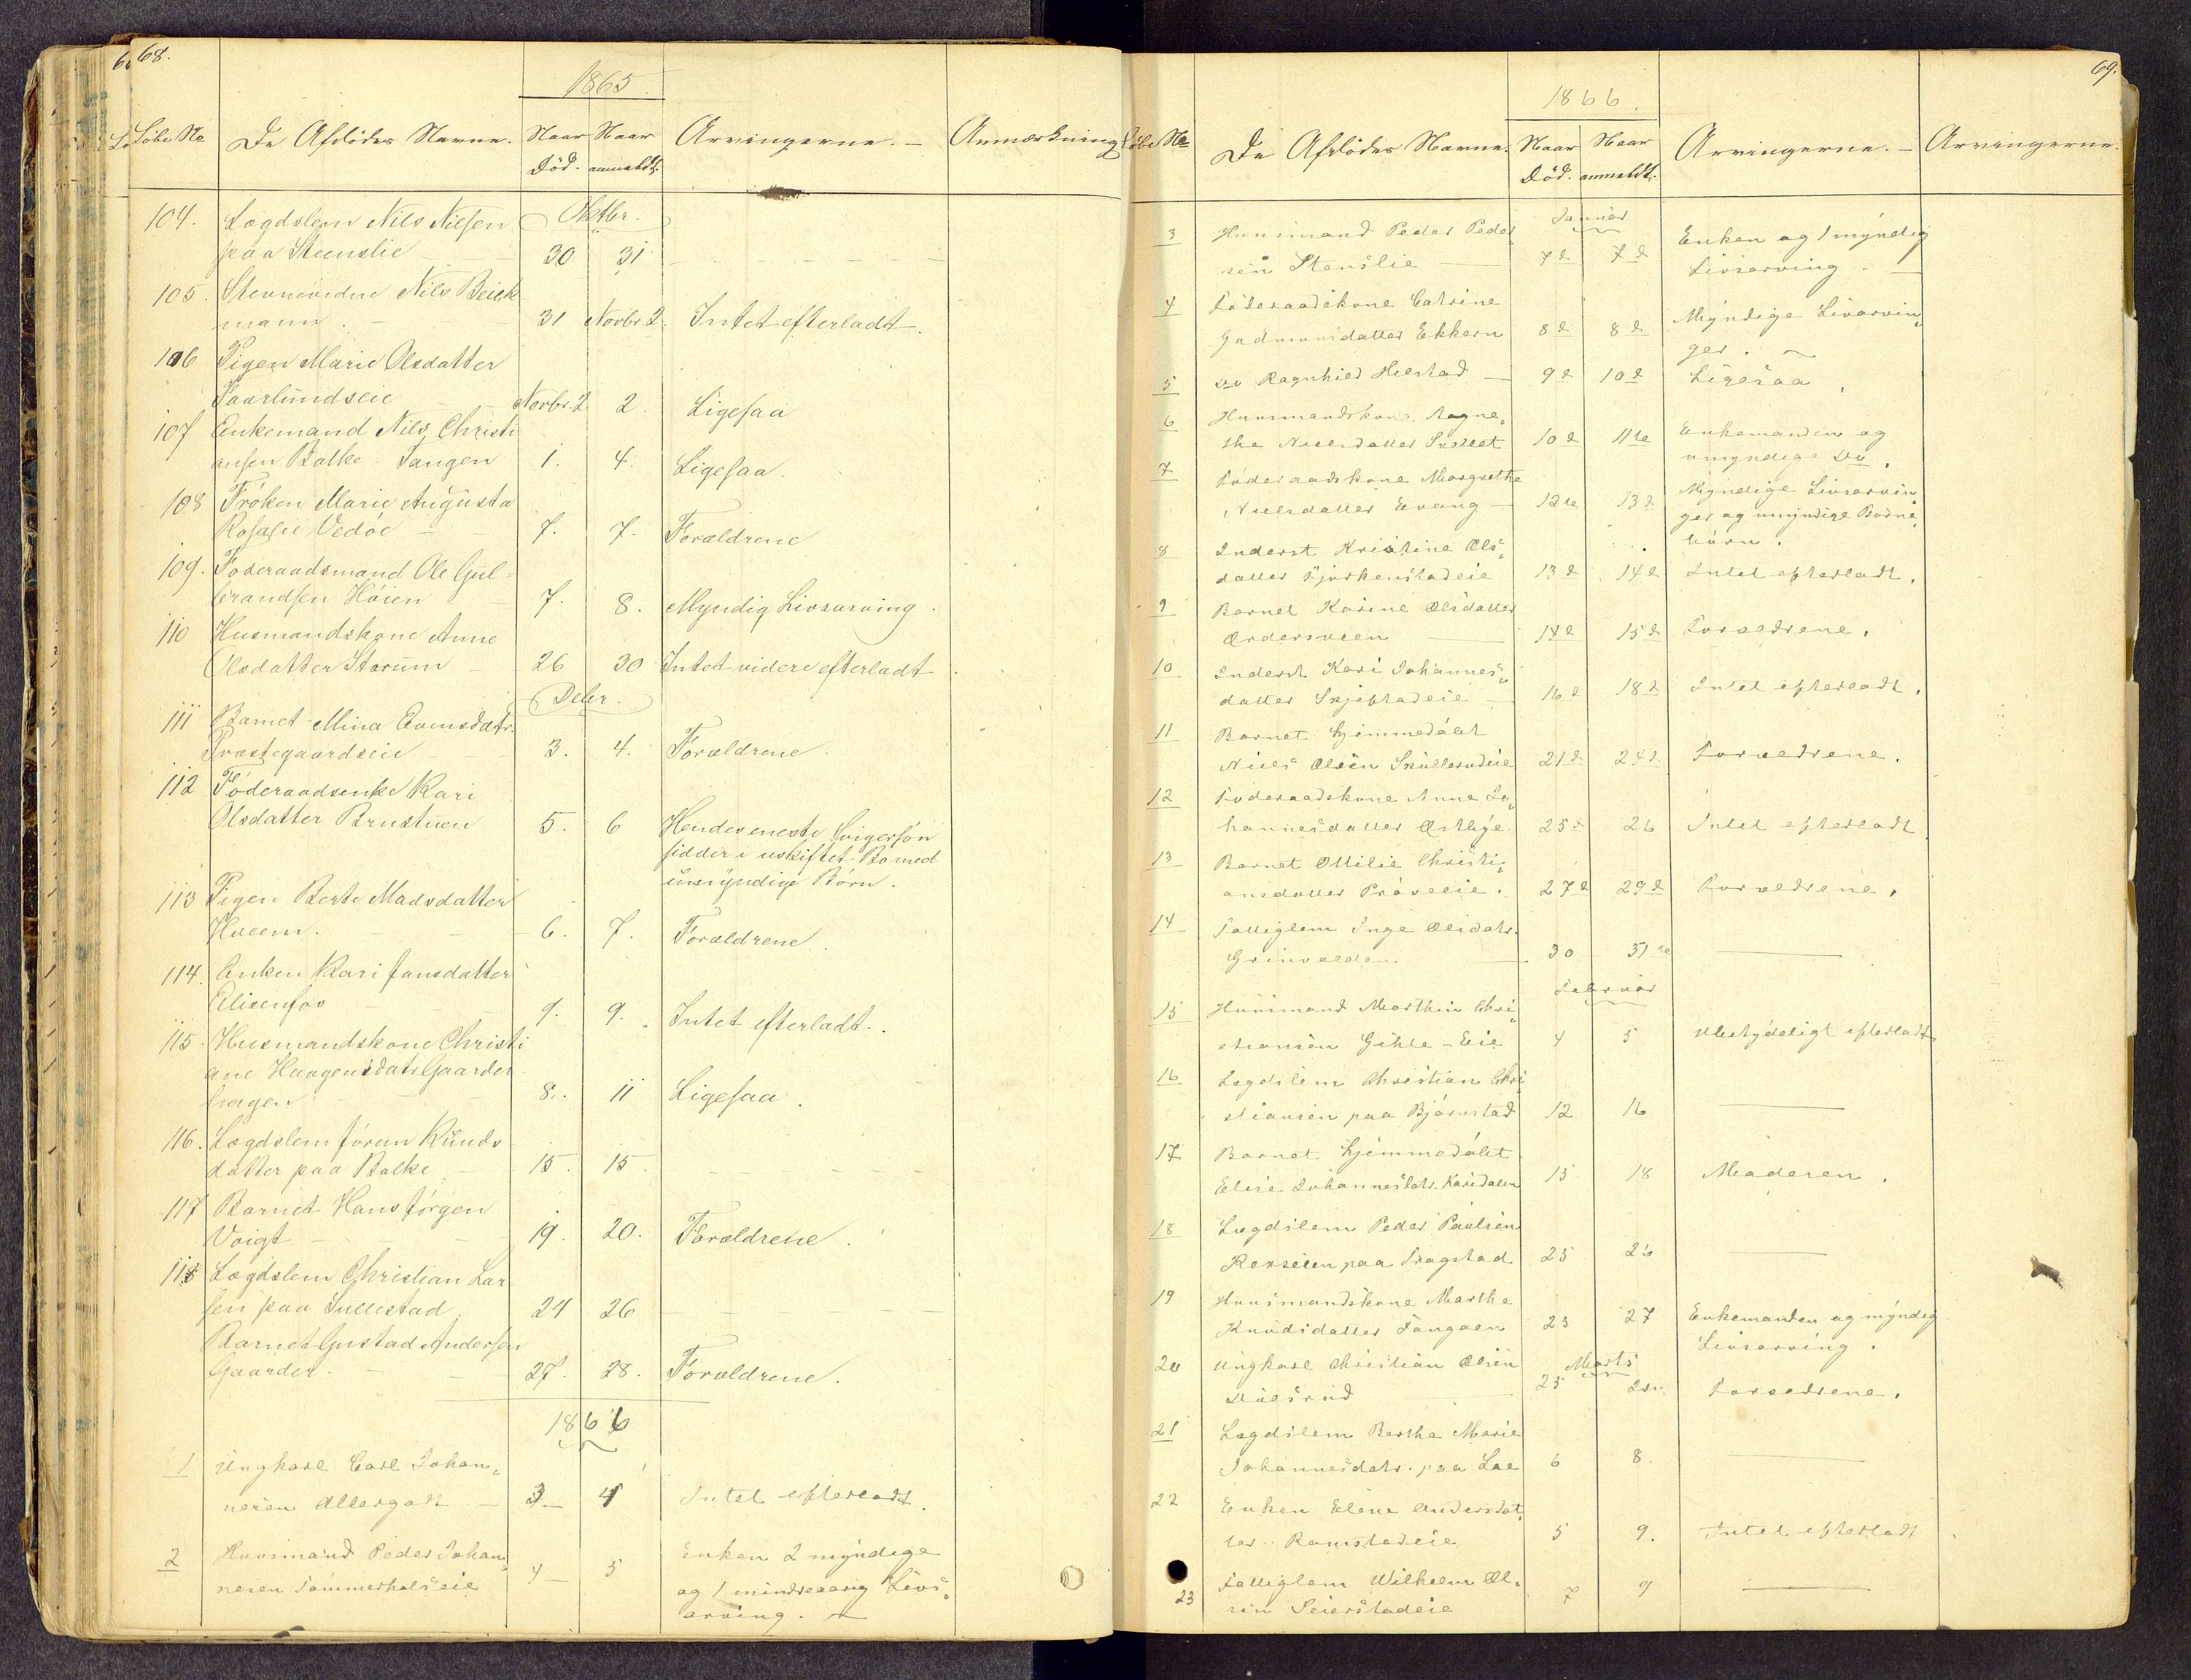 68.
1865.
Løbe No De Afdødes Navne. Naar Død. Naar anmeldt. Arvingerne. – Anmærkning
104. Lægdslem Nils Nilsen Oktbr.
paa Steenslie 30 31
105. Stevnevidne Nils Beick
mann. 31 Novbr. 2. Intet efterladt.
106 Pigen Marie Olsdatter
Paarlundseie Novbr. 2 2. Ligesaa
107 Enkemand Nils Christi
ansen Balke-Tangen 1. 4. Ligesaa.
108 Frøken Marie Augusta
Rosalie Vedøe 7. 7. Forældrene
109. Føderaadsmand Ole Gul-
brandsen Høien 7. 8. Myndig Livsarving.
110 Husmandskone Anne
Olsdatter Starum 26 30 Intet videre efterladt.
Debr.
111 Barnet Mina Evensdatr.
Præstegaardseie 3. 4. Forældrene.
112 Føderaadsenke Kari
Olsdatter Brustuen 5. 6 Hendes eneste Svigersøn
sidder i uskiftet Bo med
umyndige Børn.
113 Pigen Berte Madsdatter
Hveem. 6. 7. Forældrene.
114. Enken Kari Jansdatter
9. 9. Intet efterladt.
115. Husmandskone Christi
ane Haagensdatr. Gaarder
hagen 8. 11 Ligesaa.
116. Lægdslem Jøran Knuds
datter paa Balke 15. 15.
117 Barnet Hans Jørgen
Voigt 19. 20. Forældrene.
118 Lægdslem Christian Lar
sen paa Sullestad. 24 26
Barnet Gustad Andersen
Gaarder. 27. 28. Forældrene.
1866
1 Ungkarl Carl Johan„
nesen Allergodt 3 4 Intet efterladt.
2 Huusmand Peder Johan„
nesen Sommerhalseie 4 5 Enken 2 myndige
og 1 mindreaarig Livs„
arving.
69.
1866.
Løbe No De Afdødes Navne. Naar Død. Naar anmeldt. Arvingerne. – Arvingerne.
Januar
3 Huusmand Peder Peder„
sen Stenslie 7de 7de Enken og 1 myndig
Livsarving.
4 Føderaadskone Catrine
Gudmunsdatter Ekkern 8de 8de Myndige Livsarvin„
ger.
5 do Ragnhild Helstad 9de 10de Ligesaa.
6 Huusmandskone Agne„
the Nielsdatter 10de 11te Enkemanden og
umyndige do.
7 Føderaadskone Margrethe
Nielsdatter Evang 12te 13de Myndige Livsarvin„
ger og umyndige Børne„
børn.
8 Inderst Kristine Ols„
datter 13de 14de Intet efterladt.
9 Barnet Karine Olsdatter
14de 15de Forældrene.
10 Inderst Kari Johannes„
datter 16de 18de Intet efterladt.
11 Barnet hjemmedøbt
Niels Olsen Skullerudeie 21de 24de Forældrene.
12 Føderaadskone Anne Jo„
hannesdatter 25de 26 Intet efterladt
13 Barnet Ottilie Christi„
ansdatter Prøveeie. 27de 29de Forældrene.
14 Fattiglem Inge Olsdatr.
Grinvolden 30 31te
Februar
15 Huusmand Marthin Chri„
stiansen Gihle-Eie 4 5 Ubetydeligt efterladt
16 Lægdslem Christian Chri
stiansen paa Bjørnstad 12 16
17 Barnet hjemmedøbt
Elise Johannesdatr. 15 18 Moderen.
18 Lægdslem Peder Paulsen
paa Fragstad 25 26
19 Huusmandskone Marthe
Knudsdatter Tangoen 25 27 Enkemanden og myndig
Livsarving.
20 Ungkarl Christian Olsen Marts
25 Forældrene.
21 Lægdslem Berthe Marie
Johannesdatr. paa Loe 6 8.
22 Enken Elene Andersdat„
ter Ramstadeie 5 9. Intet efterladt
23 Fattiglem Wilhelm Ol„
sen Seierstadeie 7 9